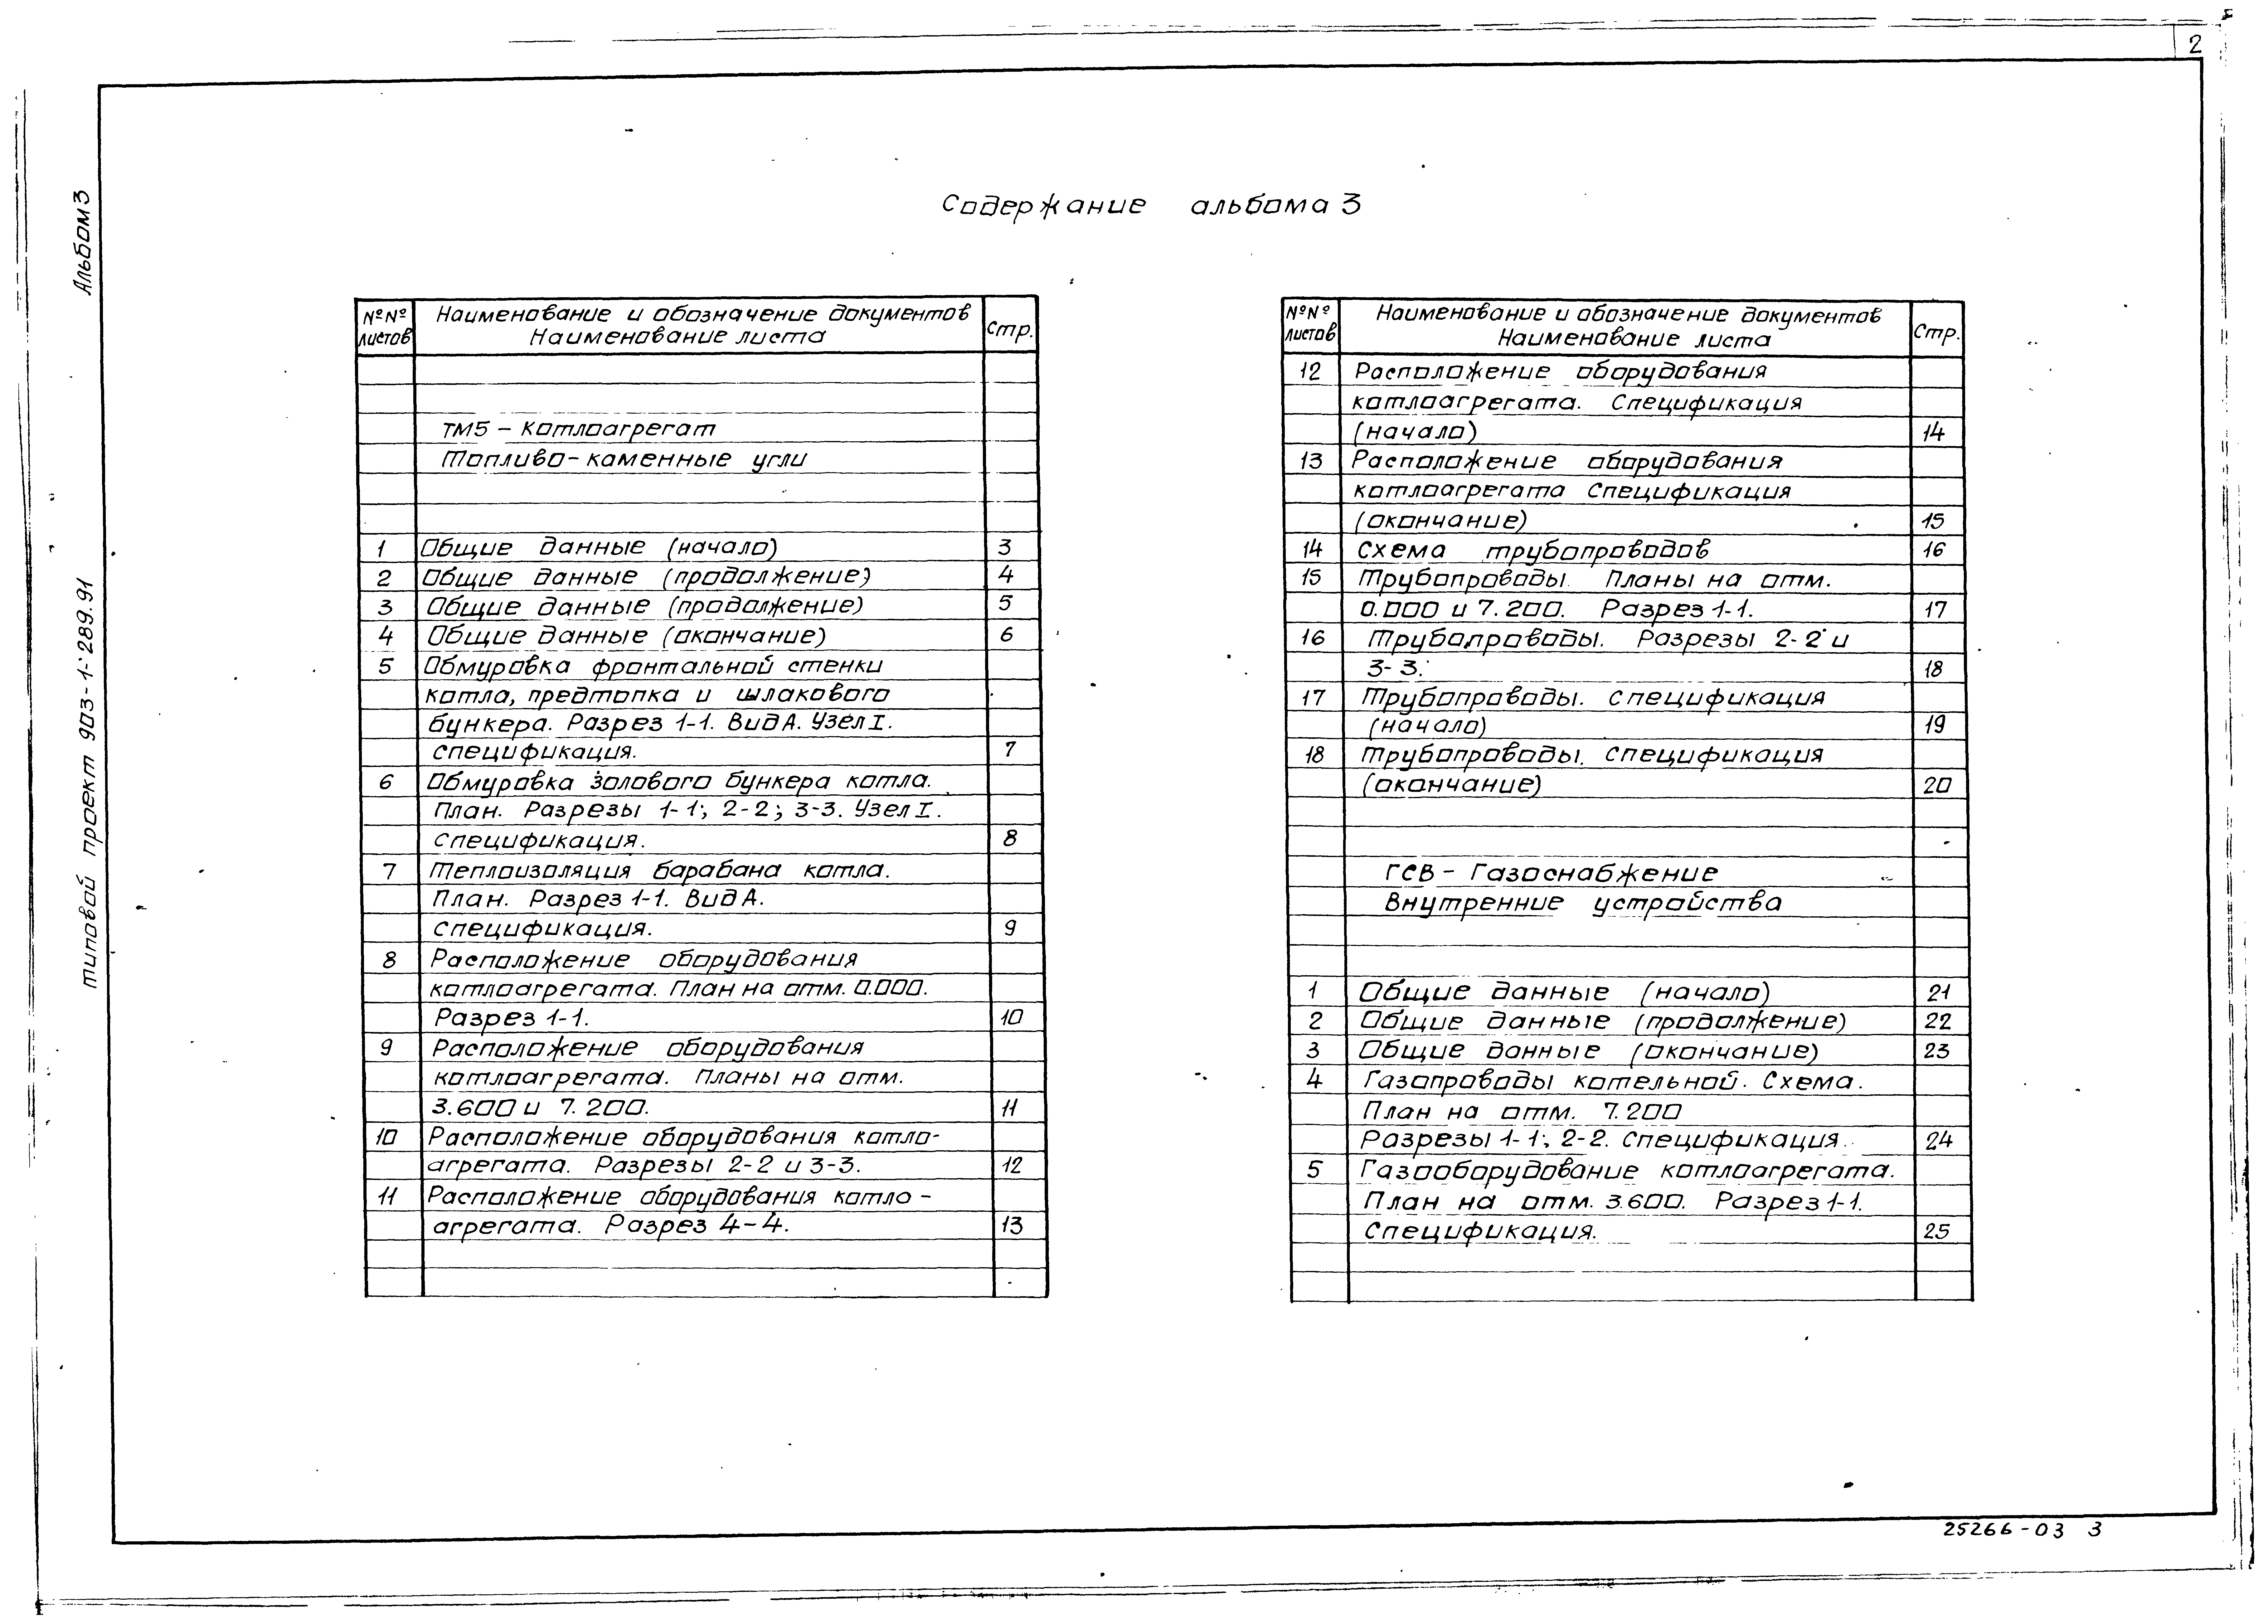 2
Альбом 3
Типовой проект 903-1-289.91
Содержание альбома 3
№№ листов Наименование и обозначение документов Наименование листа Стр.
ТМ5 - Котлоагрегат
Топливо - каменные угли
1 Общие данные (начало) 3
2 Общие данные (продолжение) 4
3 Общие данные (продолжение) 5
4 Общие данные (окончание) 6
5 Обмуровка фронтальной стенки
котла, предтопка и шлакового
бункера. Разрез 1-1. Вид А. Узел I.
Спецификация. 7
6 Обмуровка золового бункера котла.
План. Разрезы 1-1; 2-2; 3-3. Узел I.
Спецификация. 8
7 Теплоизоляция барабана котла.
План. Разрез 1-1. Вид А.
Спецификация. 9
8 Расположение оборудования
котлоагрегата. План на отм. 0.000.
Разрез 1-1. 10
9 Расположение оборудования
котлоагрегата. Планы на отм.
3.600 и 7.200. 11
10 Расположение оборудования котло-
агрегата. Разрезы 2-2 и 3-3. 12
11 Расположение оборудования котло-
агрегата. Разрез 4-4. 13
№№ листов Наименование и обозначение документов Наименование листа Стр.
12 Расположение оборудования
котлоагрегата. Спецификация
(начало) 14
13 Расположение оборудования
котлоагрегата Спецификация
(окончание) 15
14 Схема трубопроводов 16
15 Трубопроводы. Планы на отм.
0.000 и 7.200. Разрез 1-1. 17
16 Трубопроводы. Разрезы 2-2 и
3-3. 18
17 Трубопроводы. Спецификация
(начало) 19
18 Трубопроводы. Спецификация
(окончание) 20
ГСВ - Газоснабжение
Внутренние устройства
1 Общие данные (начало) 21
2 Общие данные (продолжение) 22
3 Общие данные (окончание) 23
4 Газопроводы котельной. Схема.
План на отм. 7.200
Разрезы 1-1; 2-2. Спецификация. 24
5 Газооборудование котлоагрегата.
План на отм. 3.600. Разрез 1-1.
Спецификация. 25
25266-03 3